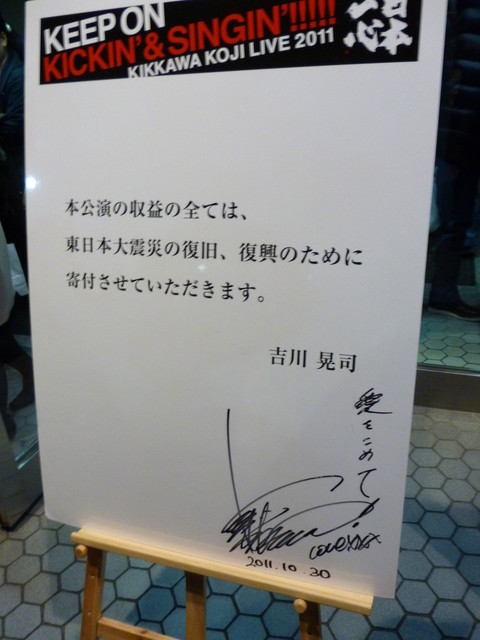 KEEP ON
KICKIN'&SINGIN'!!!!!
KIKKAWA KOJI LIVE 2011
日本一心
本公演の収益の全ては、
東日本大震災の復旧、復興のために
寄付させていただきます。
吉川 晃司
愛をこめて
2011.10.30